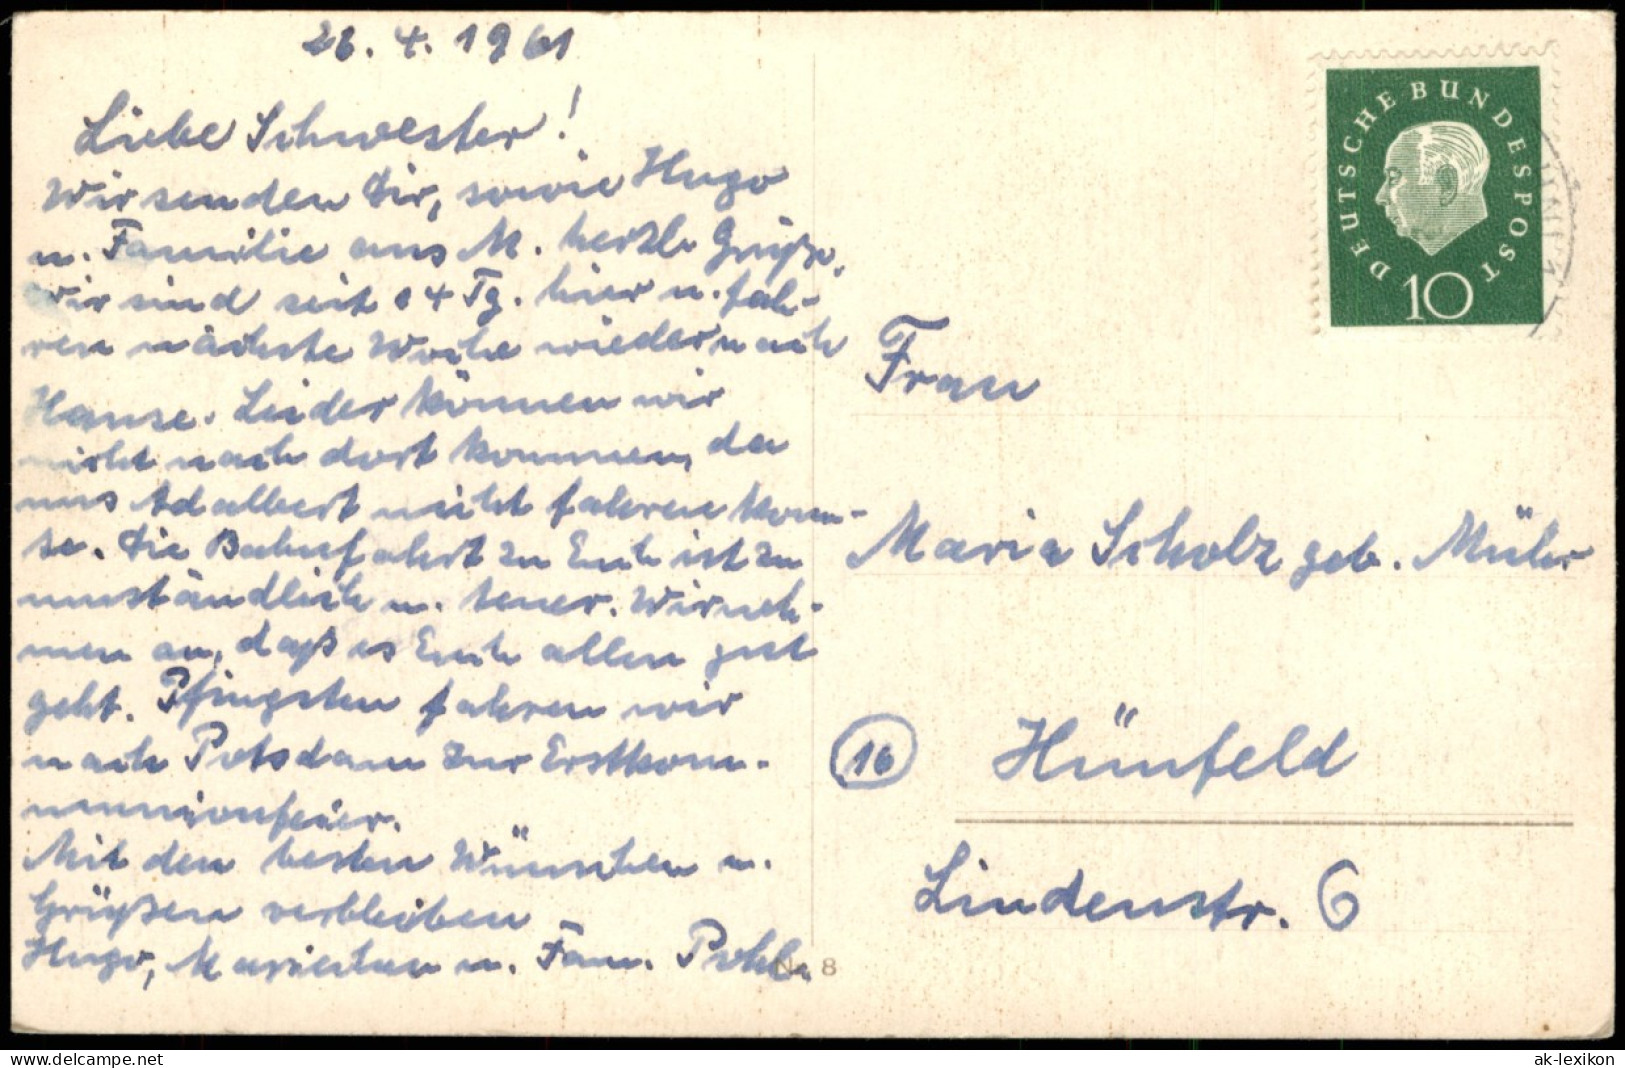 28. 4. 1961
Liebe Schwester!
Wir senden Dir, sowie Hugo
u. Familie aus M. herzl. Grüße,
wir sind seit 14 Tg. hier u. fah-
ren nächste Woche wieder nach
Hause. Leider können wir
nicht nach dort kommen, da
uns Adalbert nicht fahren konn-
te. Die Bahnfahrt zu Euch ist zu
umständlich u. teuer. Wir neh-
men an, daß es Euch allen gut
geht. Pfingsten fahren wir
nach Potsdam zur Erstkom-
munionfeier.
Mit den besten Wünschen u.
Grüßen verbleiben
Hugo, u. Fam. Pohl.
Nr. 8
DEUTSCHE BUNDESPOST
10
Frau
Maria Scholz geb. Müller
16 Hünfeld
Lindenstr. 6
www.delcampe.net
ak-lexikon